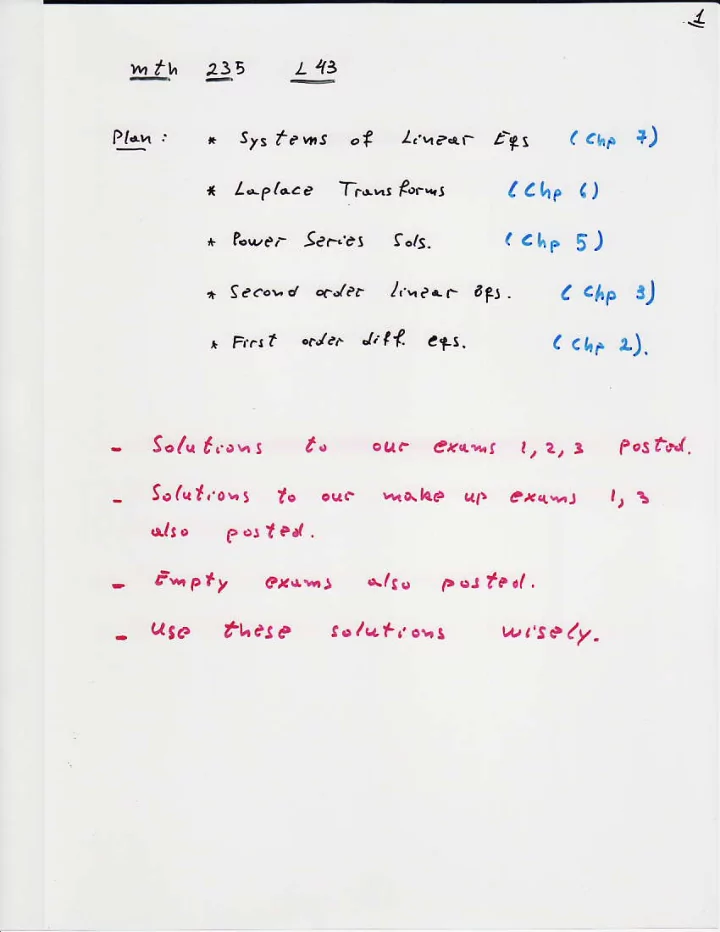 1
mth 235 L 43
Plan : * Systems of Linear Eqs (Chp 7)
* Laplace Transforms (Chp 6)
* Power Series Sols. (Chp 5)
* Second order linear eqs. (Chp 3)
* First order diff. eqs. (Chp 2).
- Solutions to our exams 1, 2, 3 posted.
- Solutions to our make up exams 1, 3
also posted.
- Empty exams also posted.
- Use these solutions wisely.